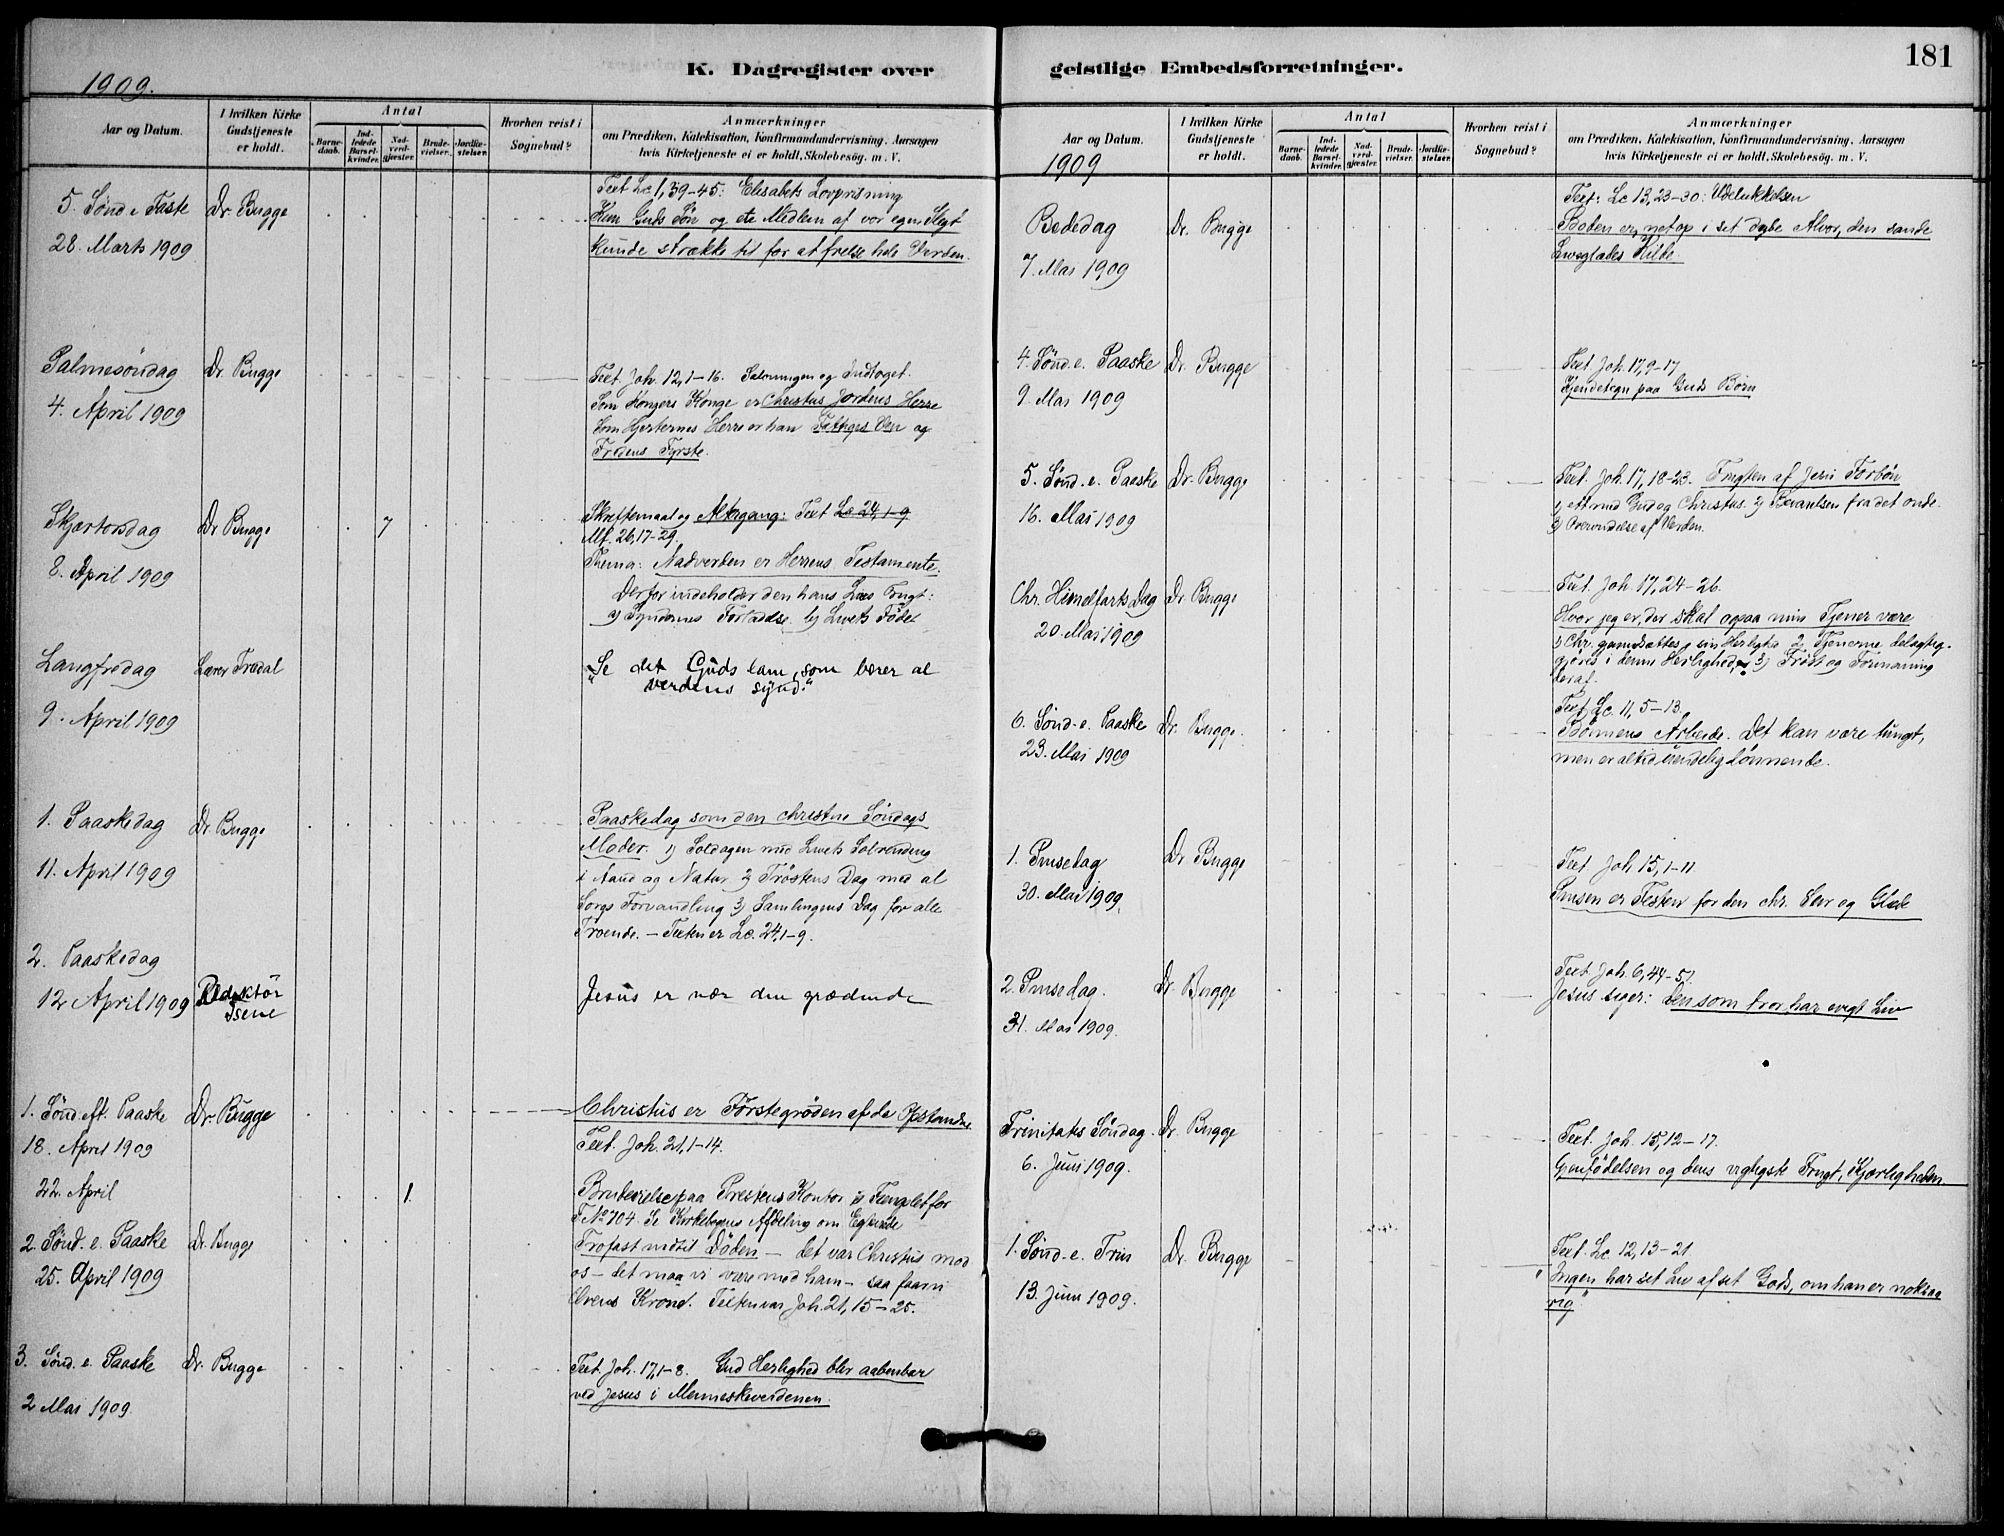 181
1909.
K. Dagregister over
geistlige Embedsforretninger.
Aar og Datum.
I hvilken Kirke Gudstjeneste er holdt.
Antal
Barnedaab.
Indledede Barselkvinder.
Nadverdgjæster.
Brudevielser.
Jordfæstelser.
Hvorhen reist i Sognebud?
Anmærkninger
om Prædiken, Katekisation, Konfirmandundervisning. Aarsagen
hvis Kirketjeneste ei er holdt. Skolebesøg. m. V.
5. Sønd i Faste
Dr. Bugge
28. Marts 1909
Text Lc. 1, 39-45: Elisabets Lovprisning
Kun Guds Søn og et Medlem af vor egen Slegt
kunde strække til for at frelse hele Verden.
Palmesøndag
Dr. Bugge
4. April 1909
Text. Joh. 12, 1-16. Salvningen og Indtoget.
Som Kongers Konge er Christus Jordens Herre
Som Hjerternes Herre er han Fattiges Ven og
Fredens Fyrste.
Skjærtorsdag
Dr Bugge
7
8. April 1909
Skriftemaal og Altergang: Text Lc 24, 1-9
Mt. 26, 17-29.
Thema: Nadverden er Herrens Testamente.
Derfor indeholder den hans Livs Frugt:
a) Syndernes Forladelse b) Livets Føde.
Langfredag
Lærer Frædal
9. April 1909
"Se det Guds lam, som bærer al
verdens synd."
1. Paaskedag
Dr. Bugge
11. April 1909
Paaskedag som den christne Søndags
Moder. 1) Soldagen med Livets Solvending
i Aand og Natur 2) Trøstens Dag med al
Sorgs Forvandling 3) Samlingens Dag for alle
Troende. - Texten er Lc. 24, 1-9.
2. Paaskedag
12 April 1909
Redaktør
Isene
Jesus er nær den grædende
1. Sønd. eft. Paaske
Dr. Bugge
18. April 1909
Christus er Førstegrøden af de Opstandne
Text. Joh. 21, 1-14.
22. April
1.
Brudevielse paa Prestens Kontor i Fenglet for
F No 704. Se Kirkebogens Afdeling om Egteviede
2. Sønd. e. Paaske
Dr. Bugge
25. April 1909
Trofast indtil Døden - det var Christus mod
os - det maa vi være mod ham - saa faar vi
Livens Krone. Texten var Joh. 21, 15-25.
3. Sønd. e. Paaske
Dr. Bugge
2 Mai 1909
Text. Joh. 17, 1-8. Gud Herlighed blir aabenbar
ved Jesus i Menneskeverdenen.
Aar og Datum.
1909
I hvilken Kirke Gudstjeneste er holdt.
Antal
Barnedaab.
Indledede Barselkvinder.
Nadverdgjæster.
Brudevielser.
Jordfæstelser.
Hvorhen reist i Sognebud?
Anmærkninger
om Prædiken, Katekisation, Konfirmandundervisning. Aarsagen
hvis Kirketjeneste ei er holdt. Skolebesøg. m. V.
Bededag
Dr. Bugge
7. Mai 1909
Text: Lc 13, 23-30: Udelukkelsen
Boden er, netop i sit dybe Alvor, den sande
Livsglædes Kilde.
4. Sønd. e. Paaske
Dr. Bugge
9. Mai 1909
Text Joh. 17, 9-17
Kjendetegn paa Guds Børn
5. Sønd. e. Paaske
Dr. Bugge
16. Mai 1909
Text. Joh. 17, 18-23. Frugten af Jesu Forbøn
1) ett med Gud og Christus 2) Bevarelsen fra det onde.
3) Overvindelse af Verden.
Chr. Himelfarts Dag
Dr. Bugge
20. Mai 1909
Text. Joh. 17, 24-26.
Hvor jeg er, der skal ogsaa min Tjener være
2) Tjenerne delagtiggjøres i denne Herlighed, 3) Trøst og Formaning
deraf.
6. Sønd. e. Paaske
Dr. Bugge.
23. Mai 1909
Text. Lc. 11, 5-13.
Bønnens Arbeide. Det kan være tungt,
men er altid uendelig lønnende.
1. Pinsedag
Dr Bugge
30. Mai 1909.
Text Joh. 15, 1-11.
Pinsen er Festen for den chr. Seir og Glæde
2. Pinsedag.
Dr. Bugge
31. Mai 1909.
Text Joh. 6, 44-51.
Jesus siger: Den som tror, har evigt Liv
Trinitatis Søndag.
Dr. Bugge
6. Juni 1909.
Text. Joh. 15, 12-17.
Gjenfødelsen og dens vigtigste Frugt, Kjærligheden.
1. Sønd. e. Trin
Dr. Bugge
13. Juni 1909.
Text. Lc. 12, 13-21.
"Ingen har sit Liv af sit Gods, om han er nok saa
rig."